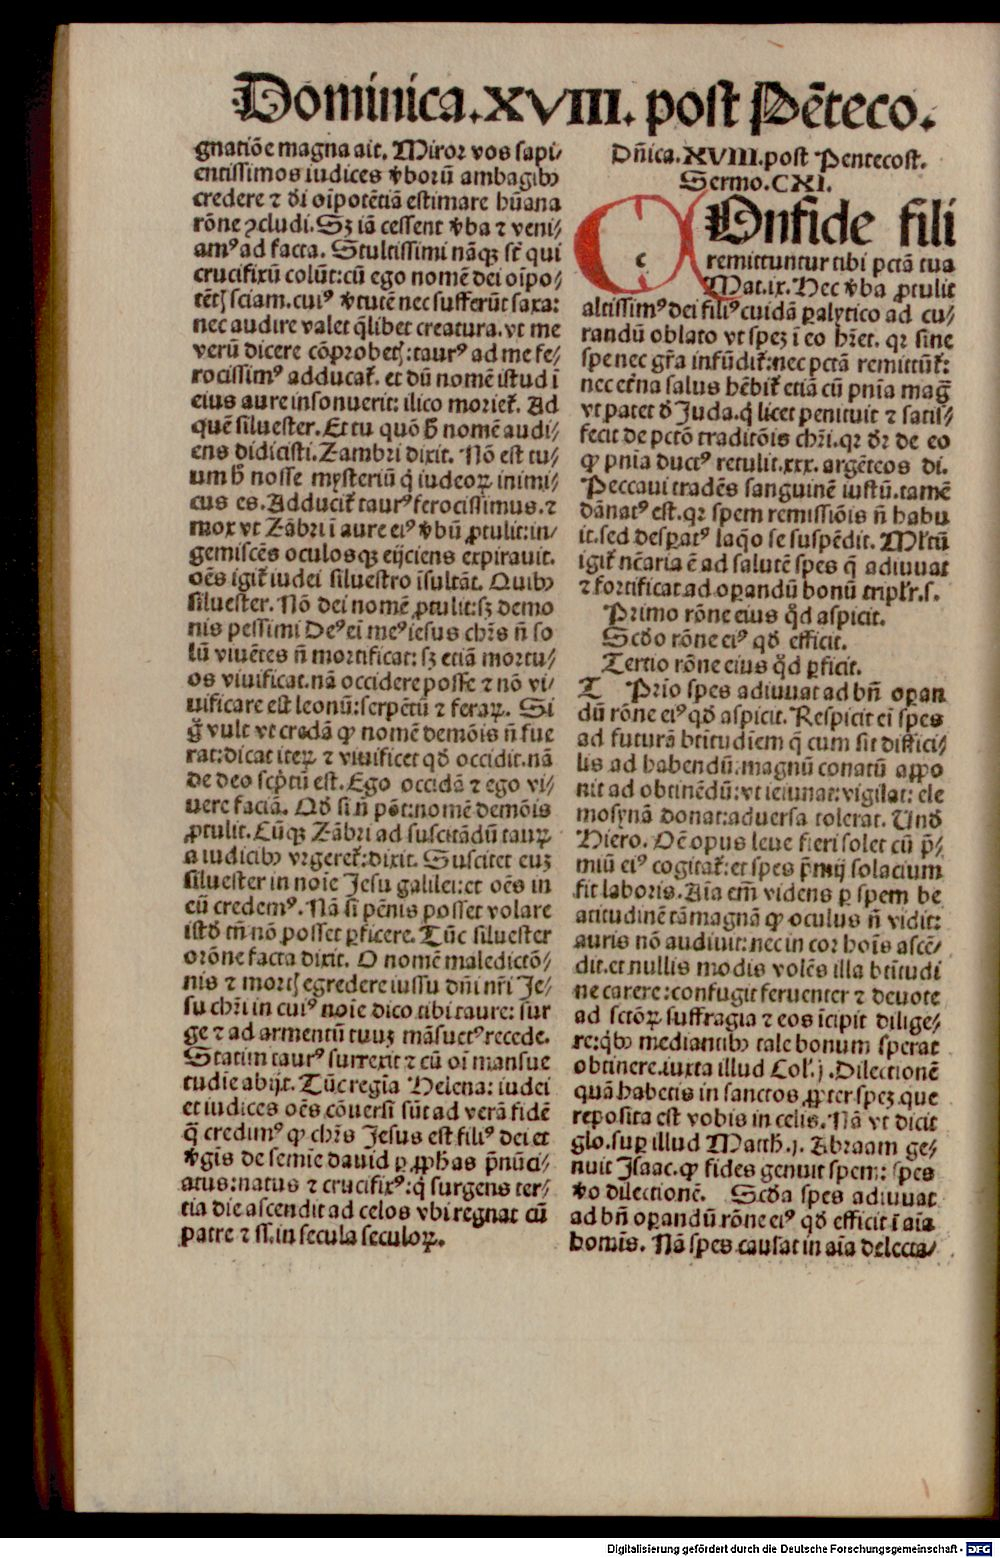 Dominica.XVIII. post Pēteco.
gnatiōe magna ait. Miror vos sapi/
entissimos iudices v̄borū ambagibꝰ
credere ⁊ d̄i oīpotētiā estimare hūana
rōne ꝯcludi. Sꝫ iā cessent v̄ba ⁊ veni/
amꝰ ad facta. Stultissimi nāqꝫ sūt qui
crucifixū colūt: cū ego nomē dei oīpo/
tētꝭ sciam. cuiꝰ v̄tutē nec sufferūt saxa:
nec audire valet q̄libet creatura. vt me
verū dicere cōprobetꝭ: taurꝰ ad me fe/
rocissimꝰ adducat᷑. et dū nomē istud ī
eius aure insonuerit: ilico moriet᷑. Ad
quē siluester. Et tu quō h̄ nomē audi/
ens didicisti. Zambri dixit. Nō est tu/
um h̄ nosse mysteriū q̇ iudeoꝝ inimi/
cus es. Adducit᷑ taurꝰ ferocissimus. ⁊
mox vt Zābri ī aure eiꝰ v̄bū ꝓtulit: in/
gemiscēs oculosqꝫ eijciens expirauit.
oēs igit᷑ iudei siluestro īsultāt. Quibꝰ
siluester. Nō dei nomē ꝓtulit: sꝫ demo
nis pessimi Deꝰ eī meꝰ iesus chr̄s n̄ so
lū viuētes n̄ mortificat: sꝫ etiā mortu/
os viuificat. nā occidere posse ⁊ nō vi/
uificare est leonū: serpētū ⁊ feraꝝ. Si
g̊ vult vt credā ꝙ nomē demōis n̄ fue
rat: dicat iteꝝ ⁊ viuificet qd̄ occidit. nā
de deo scp̄tū est. Ego occidā ⁊ ego vi/
uere faciā. Qd̄ si n̄ pōt: nomē demōis
ꝓtulit. Cūqꝫ Zābri ad suscitādū tauꝝ
a iudicibꝰ vrgeret᷑: dixit. Suscitet euꝫ
siluester in noīe Jesu galilei: et oēs in
eū credemꝰ. Nā si pēnis posset volare
istd̄ tn̄ nō posset ꝑficere. Tūc siluester
orōne facta dixit. O nomē maledictō/
nis ⁊ mortꝭ egredere iussu dn̄i nr̄i Je/
su chr̄i in cuiꝰ noīe dico tibi taure: sur
ge ⁊ ad armentū tuuꝫ māsuetꝰ recede.
Statim taurꝰ surrexit ⁊ cū oī mansue
tudīe abijt. Tūc regīa Helena: iudei
et iudices oēs cōuersi sūt ad verā fidē
q̄ credimꝰ ꝙ chr̄s Jesus est filiꝰ dei et
v̄gis de semīe dauid ꝑ ꝓphas p̄nūci/
atus: natus ⁊ crucifixꝰ: q̇ surgens ter/
tia die ascendit ad celos vbi regnat cū
patre ⁊ ss. in secula seculoꝝ.
Dn̄ica. XVIII. post Pentecost.
Sermo. CXI.
COnfide fili
remittuntur tibi pctā tua
Mat. ix. Hec v̄ba ꝓtulit
altissimꝰ dei filiꝰ cuidā ꝑalytico ad cu/
randū oblato vt speꝫ ī eo hr̄et. qꝛ sine
spe nec gr̄a infūdit᷑: nec pctā remittūt᷑:
nec et̄na salus hēbit᷑ etiā cū pnīa mag̃
vt patet d̄ Juda. q̇ licet penituit ⁊ satis/
fecit de pctō traditōis chr̄i. qꝛ dr̄ de eo
ꝙ pnīa ductꝰ retulit .xxx. argēteos di.
Peccaui tradēs sanguinē iustū. tamē
dānatꝰ est. qꝛ spem remissiōis n̄ habu
it. sed desꝑatꝰ laq̊o se suspēdit. Mltū
igit᷑ nc̄aria ē ad salutē spes q̄ adiuuat
⁊ fortificat ad oꝑandū bonū triplr̄. s.
Primo rōne eius qd̄ aspicit.
Scd̄o rōne eiꝰ qd̄ efficit.
Tertio rōne eius qd̄ ꝑficit.
I Prīo spes adiuuat ad bn̄ oꝑan
dū rōne eiꝰ qd̄ aspicit. Respicit eī spes
ad futurā btītudīem q̄ cum sit diffici/
lis ad habendū: magnū conatū appo
nit ad obtinēdū: vt ieiunat: vigilat: ele
mosynā donat: aduersa tolerat. Und̄
Hiero. Oē opus leue fieri solet cū p̄/
miū eiꝰ cogitat᷑: et spes p̄mij solacium
fit laboris. Aīa em̄ videns ꝑ spem be
atitudinē tāmagnā ꝙ oculus n̄ vidit:
auris nō audiuit: nec in cor hoīs ascē/
dit. et nullis modis volēs illa btītudi
ne carere: confugit feruenter ⁊ deuote
ad sctōꝝ suffragia ⁊ eos īcipit dilige/
re: q̇bꝰ mediantibꝰ tale bonum sperat
obtinere. iuxta illud Col'. j. Dilectionē
quā habetis in sanctos ꝓpter speꝫ que
reposita est vobis in celis. Nā vt dicit
glo. suꝑ illud Matth. j. Abraam ge/
nuit Isaac. ꝙ fides genuit spem: spes
v̄o dilectionē. Scd̄a spes adiuuat
ad bn̄ oꝑandū rōne eiꝰ qd̄ efficit ī aīa
homīs. Nā spes causat in aīa delecta/
Digitalisierung gefördert durch die Deutsche Forschungsgemeinschaft - DFG